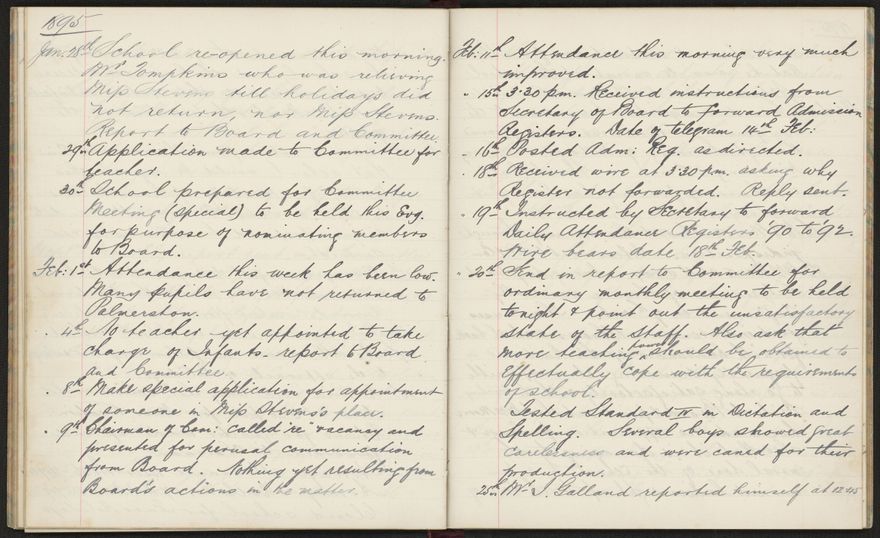 1895
Jan: 28th School re-opened this morning.
Mrs Tompkins who was relieving
Miss Stevens till holidays did
not return, nor Miss Stevens.
Report to Board and Committee.
29th Application made to Committee for
teacher.
30th School prepared for Committee
Meeting (special) to be held this Evg.
for purpose of nominating members
to Board.
Feb: 1st Attendance this week has been low.
Many pupils have not returned to
Palmerston.
" 4th No teacher yet appointed to take
charge of Infants - report to Board
and Committee
" 8th Make special application for appointment
of someone in Miss Stevens's place.
" 9th Chairman of Com: called 're' vacancy and
presented for perusal communication
from Board. Nothing yet resulting from
Board's actions in the matter.
Feb: 11th Attendance this morning very much
improved.
" 15th 3.30 p.m. Received instructions from
Secretary of Board to forward Admission
Registers. Date of telegram 14th Feb:
" 16th Posted Adm: Reg. as directed.
" 18th Received wire at 3.30 p.m. asking why
Register not forwarded. Reply sent.
" 19th Instructed by Secretary to forward
Daily Attendance Registers 90 to 92.
Wire bears date 18th Feb.
" 20th Send in report to Committee for
ordinary monthly meeting to be held
tonight & point out the unsatisfactory
state of the staff. Also ask that
more teaching power should be obtained to
effectually cope with the requirements
of school.
Tested Standard IV in Dictation and
Spelling. Several boys showed great
carelessness and were caned for their
production.
25th Mr J. Galland reported himself at 12.45